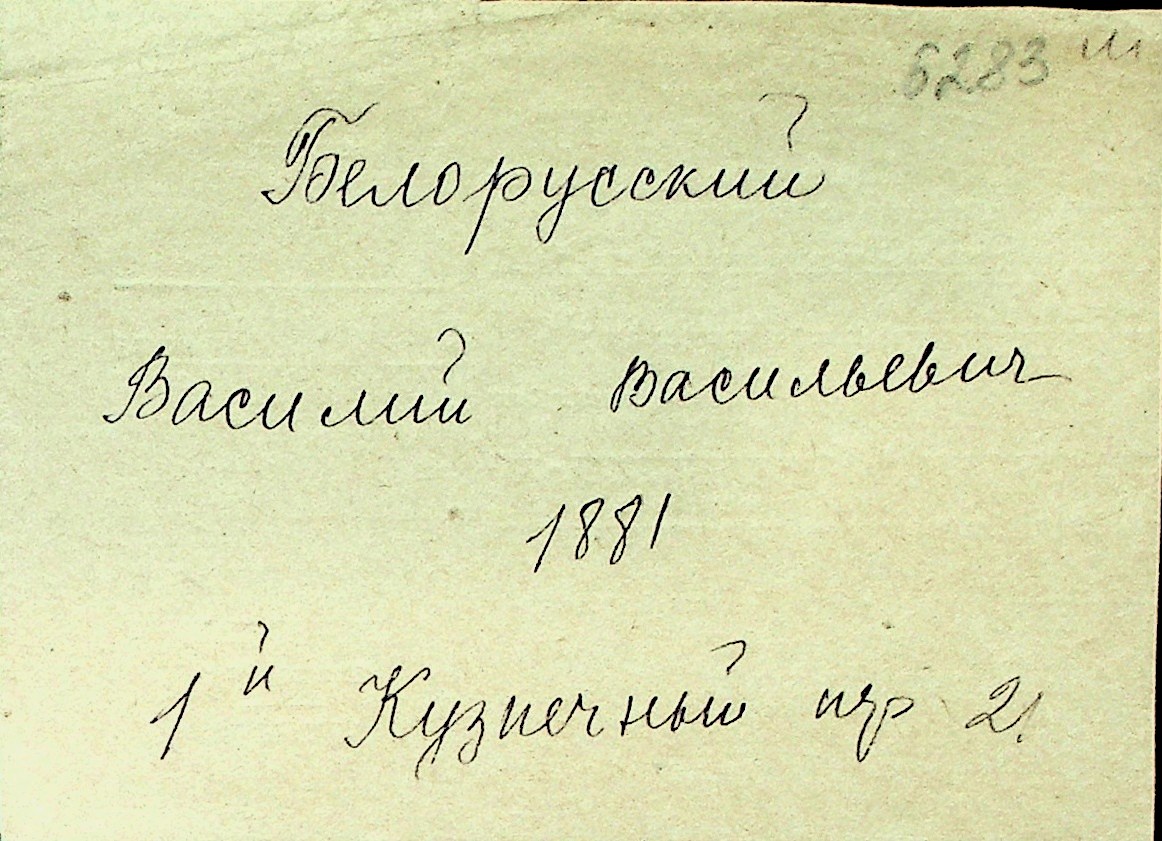 6283
Белорусский
Василий Васильевич
1881
1й Кузнечный пер 2.